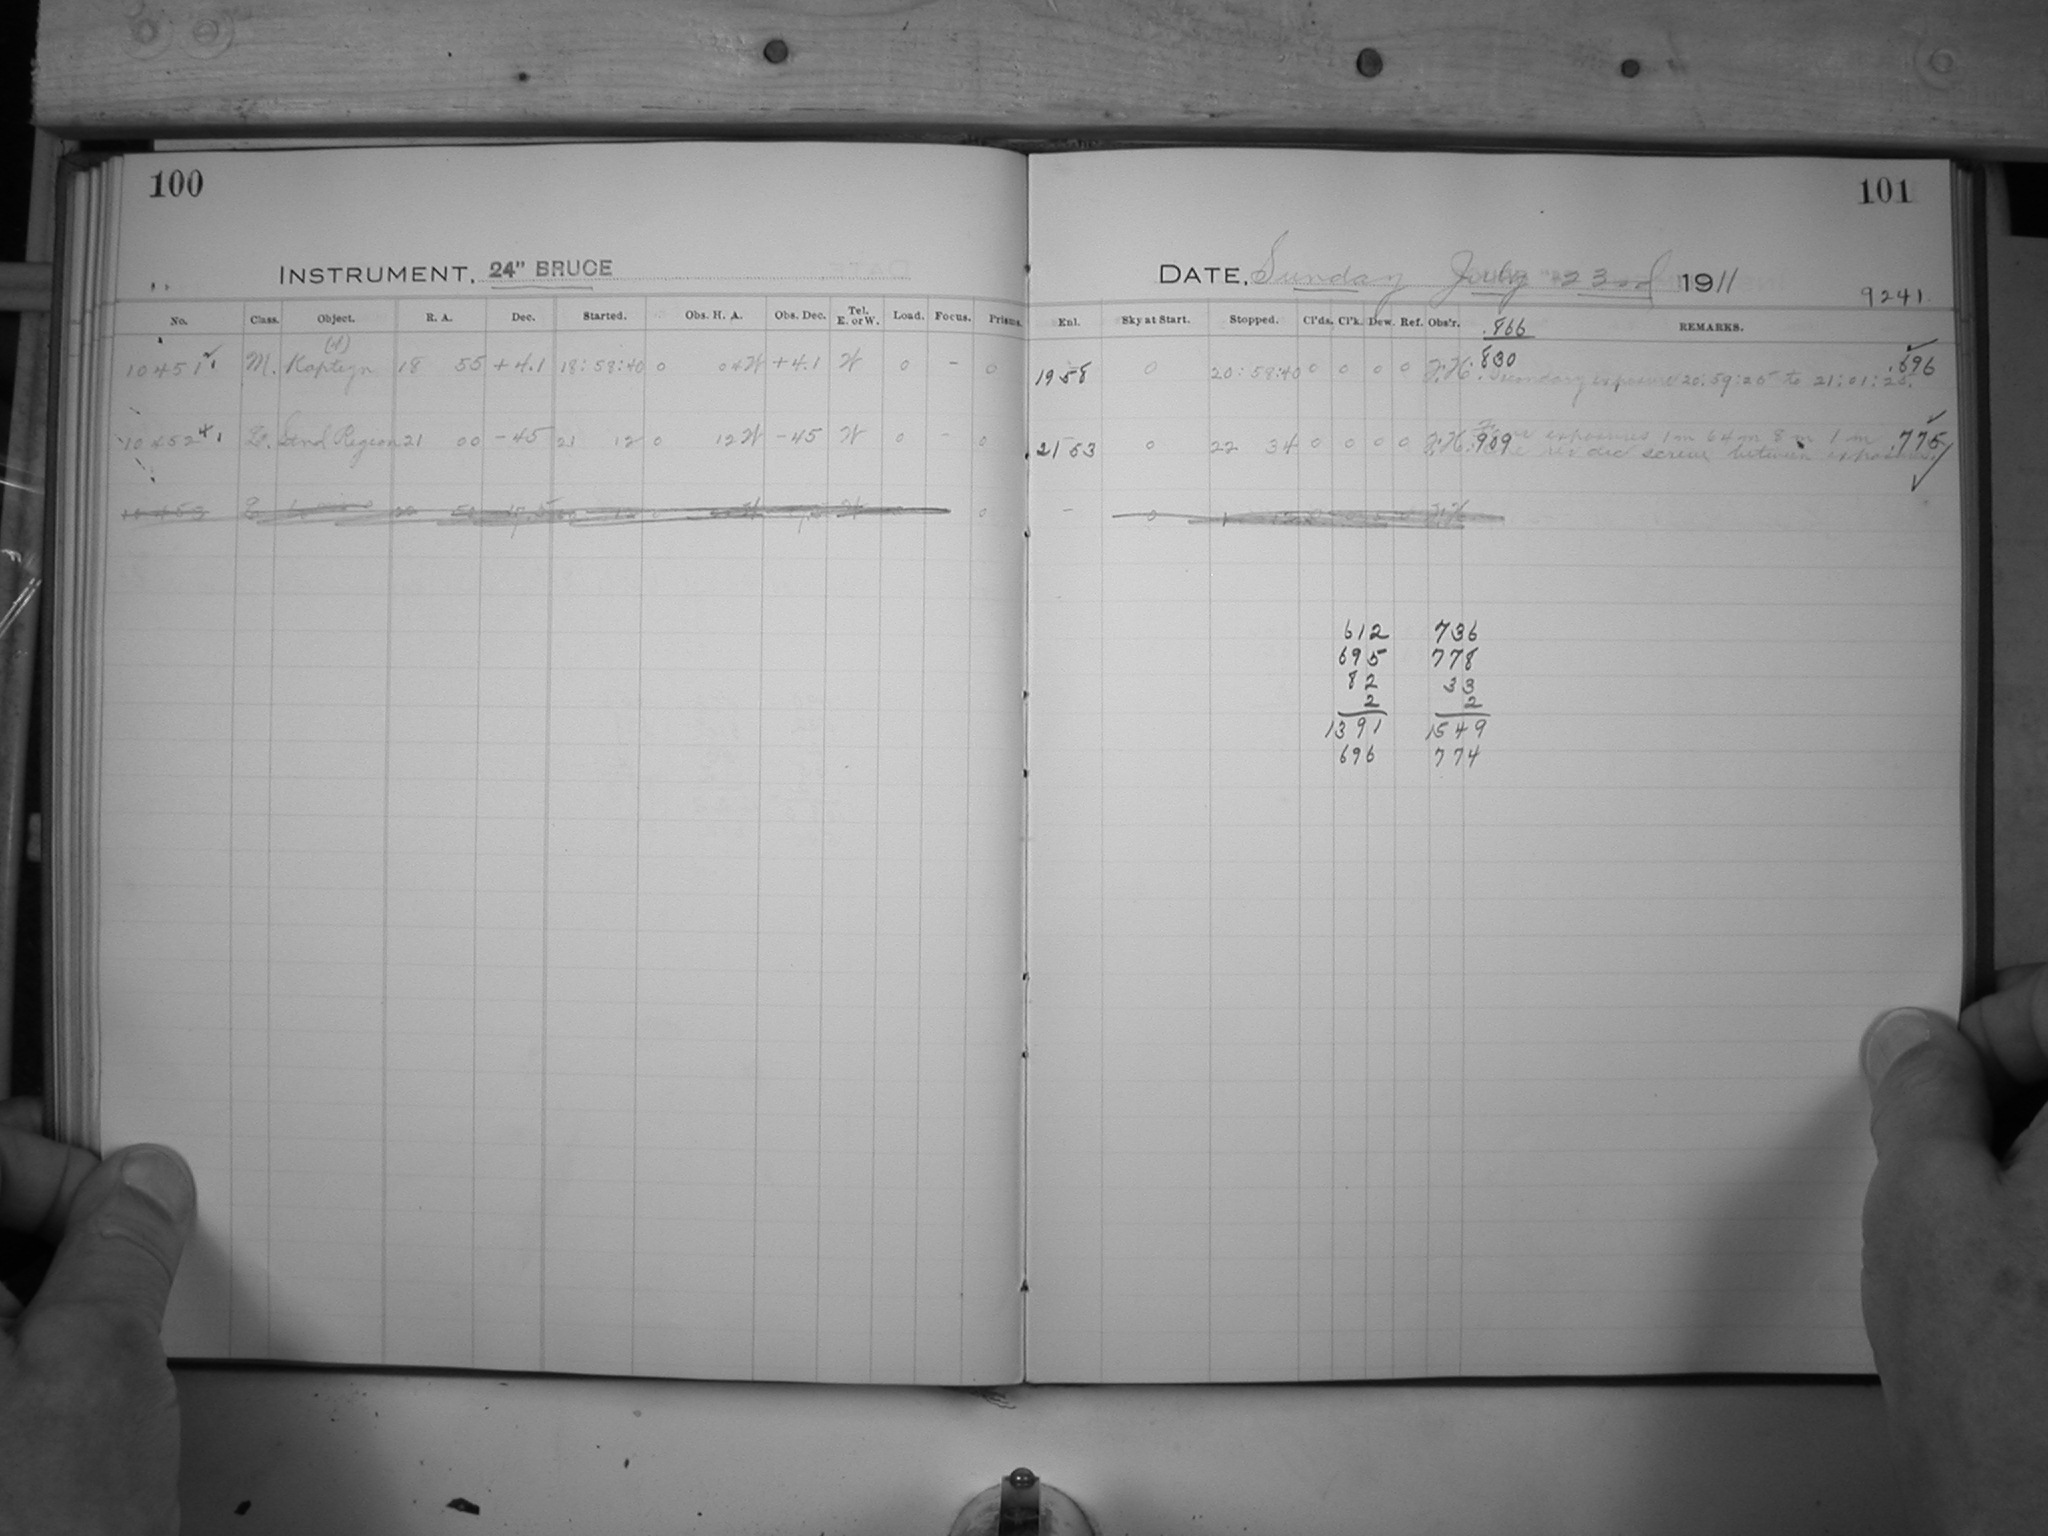 100
INSTRUMENT, 24" BRUCE
No. Class. Object. R. A. Dec. Started. Obs. H. A. Obs. Dec. Tel. E. or W. Load. Focus. Prisms.
10451 M. Kapteyn 18 55 +4.1 18:58:40 0 04 W +4.1 W 0 - 0
10452 Stnd Region 21 00 -45 21 12 0 12 W -45 W 0 - 0
101
DATE, Sunday July 23rd 1911
9241
Enl. Sky at Start. Stopped. Cl'ds. Cl'k. Dew. Ref. Obs'r. .866 REMARKS.
1958 0 20:58:40 0 0 0 0 .830 Secondary exposure 20:59:25 to 21:01:25. .696
2153 0 22 34 0 0 0 0 .909 exposures 1m 64m 8m 1m .775
dec screw between exposures
612 736
695 778
82 33
2 2
1391 1549
696 774